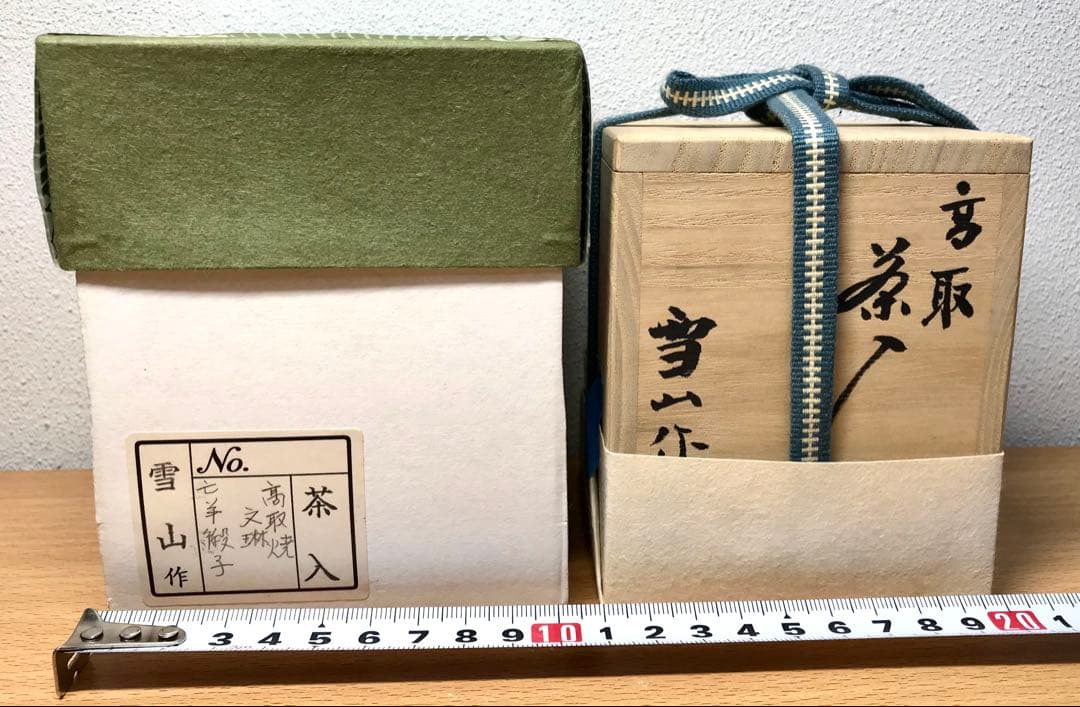 茶入
No.
高取焼
文琳
七羊緞子
雪山作
高取
茶入
雪山作
3 4 5 6 7 8 9 10 1 2 3 4 5 6 7 8 9 20 1